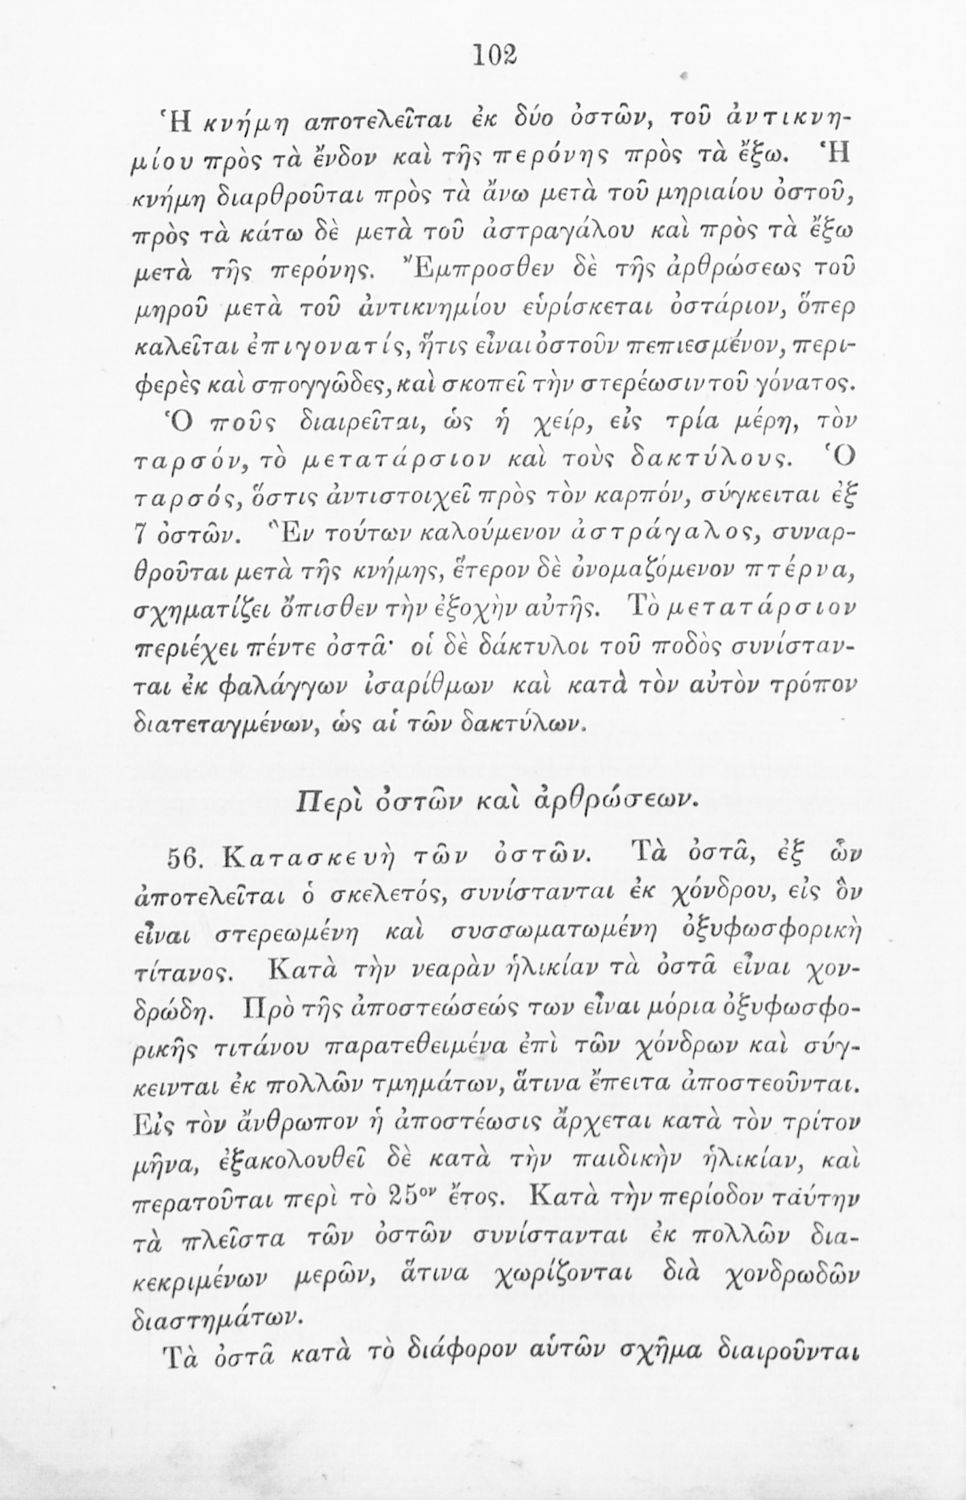 102
Ἡ κνήμη αποτελεῖται ἐκ δύο ὀστῶν, τοῦ ἀντικνη-
μίου πρὸς τὰ ἔνδον καὶ τῆς περόνης πρὸς τὰ ἔξω. Ἡ
κνήμη διαρθροῦται πρὸς τὰ ἄνω μετὰ τοῦ μηριαίου ὀστοῦ,
πρὸς τὰ κάτω δὲ μετὰ τοῦ ἀστραγάλου καὶ πρὸς τὰ ἔξω
μετὰ τῆς περόνης. Ἔμπροσθεν δὲ τῆς ἀρθρώσεως τοῦ
μηροῦ μετὰ τοῦ ἀντικνημίου εὑρίσκεται ὀστάριον, ὅπερ
καλεῖται ἐπιγονατίς, ἥτις εἶναι ὀστοῦν πεπιεσμένον, περι-
φερὲς καὶ σπογγῶδες, καὶ σκοπεῖ τὴν στερέωσιν τοῦ γόνατος.
Ὁ ποῦς διαιρεῖται, ὡς ἡ χείρ, εἰς τρία μέρη, τὸν
ταρσόν, τὸ μετατάρσιον καὶ τοὺς δακτύλους. Ὁ
ταρσός, ὅστις ἀντιστοιχεῖ πρὸς τὸν καρπόν, σύγκειται ἐξ
7 ὀστῶν. Ἓν τούτων καλούμενον ἀστράγαλος, συναρ-
θροῦται μετὰ τῆς κνήμης, ἕτερον δὲ ὀνομαζόμενον πτέρνα,
σχηματίζει ὄπισθεν τὴν ἐξοχὴν αὐτῆς. Τὸ μετατάρσιον
περιέχει πέντε ὀστᾶ· οἱ δὲ δάκτυλοι τοῦ ποδὸς συνίσταν-
ται ἐκ φαλάγγων ἰσαρίθμων καὶ κατὰ τὸν αὐτὸν τρόπον
διατεταγμένων, ὡς αἱ τῶν δακτύλων.
Περὶ ὀστῶν καὶ ἀρθρώσεων.
56. Κατασκευὴ τῶν ὀστῶν. Τὰ ὀστᾶ, ἐξ ὧν
ἀποτελεῖται ὁ σκελετός, συνίστανται ἐκ χόνδρου, εἰς ὃν
εἶναι στερεωμένη καὶ συσσωματωμένη ὀξυφωσφορικὴ
τίτανος. Κατὰ τὴν νεαρὰν ἡλικίαν τὰ ὀστᾶ εἶναι χον-
δρώδη. Πρὸ τῆς ἀποστεώσεώς των εἶναι μόρια ὀξυφωσφο-
ρικῆς τιτάνου παρατεθειμένα ἐπὶ τῶν χόνδρων καὶ σύγ-
κεινται ἐκ πολλῶν τμημάτων, ἅτινα ἔπειτα ἀποστεοῦνται.
Εἰς τὸν ἄνθρωπον ἡ ἀποστέωσις ἄρχεται κατὰ τὸν τρίτον
μῆνα, ἐξακολουθεῖ δὲ κατὰ τὴν παιδικὴν ἡλικίαν, καὶ
περατοῦται περὶ τὸ 25ον ἔτος. Κατὰ τὴν περίοδον ταύτην
τὰ πλεῖστα τῶν ὀστῶν συνίστανται ἐκ πολλῶν δια-
κεκριμένων μερῶν, ἅτινα χωρίζονται διὰ χονδρωδῶν
διαστημάτων.
Τὰ ὀστᾶ κατὰ τὸ διάφορον αὐτῶν σχῆμα διαιροῦνται